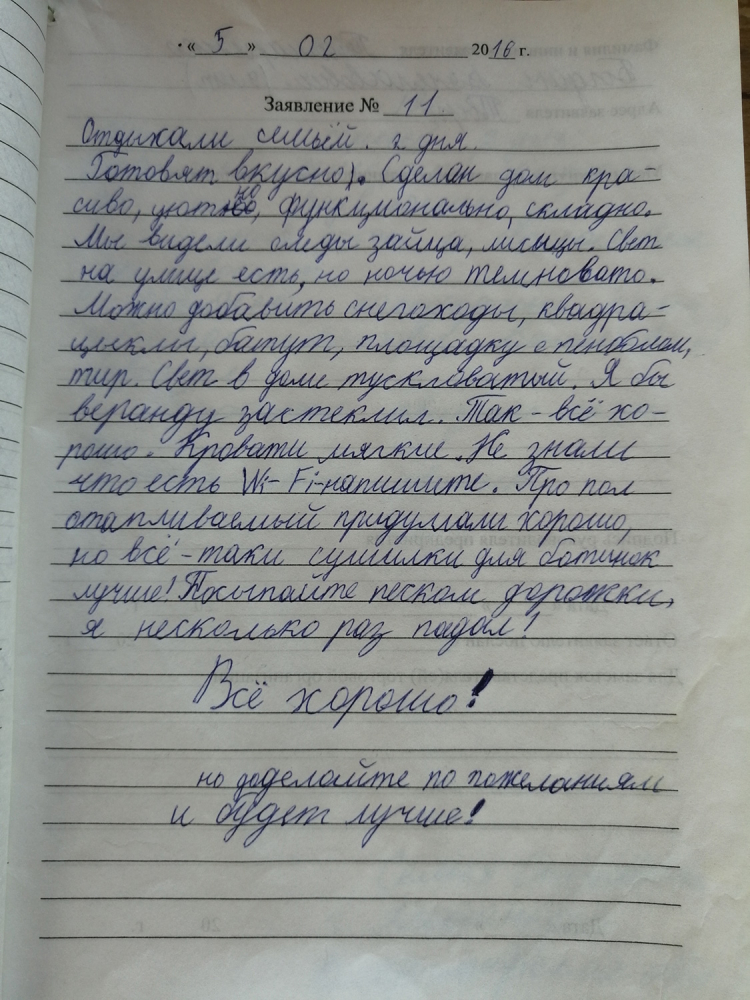 « 5 » 02 2016 г.
Заявление № 11
Отдыхали семьёй. 2 дня.
Готовят вкусно). Сделан дом кра-
сиво, уютно, функционально, складно.
Мы видели следы зайца, лисицы. Свет
на улице есть, но ночью темновато.
Можно добавить снегоходы, квадра-
цыклы, батут, площадку с пенболом,
тир. Свет в доме тускловатый. Я бы
веранду застеклил. Так - всё хо-
рошо. Кровати мягкие. Не знали
что есть Wi-Fi-напишите. Про пол
отапливаемый придумали хорошо,
но всё-таки сушилки для ботинок
лучше! Посыпайте песком дорожки,
я несколько раз падал!
Всё хорошо!
но доделайте по пожеланиям
и будет лучше!